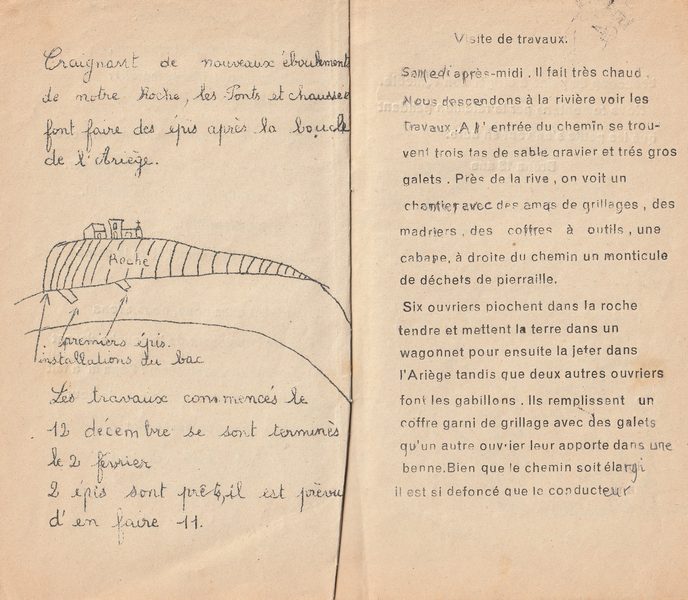 Craignant de nouveaux éboulements
de notre Roche, les Ponts et chaussées
font faire des épis après la boucle
de l'Ariège.
Roche
premiers épis.
installations du bac
Les travaux commencés le
12 décembre se sont terminés
le 2 février
2 épis sont prêts, il est prévu
d'en faire 11.
Visite de travaux.
Samedi après-midi. Il fait très chaud.
Nous descendons à la rivière voir les
Travaux. A l'entrée du chemin se trou-
vent trois tas de sable gravier et trés gros
galets. Près de la rive, on voit un
chantier avec des amas de grillages, des
madriers, des coffres à outils, une
cabane, à droite du chemin un monticule
de déchets de pierraille.
Six ouvriers piochent dans la roche
tendre et mettent la terre dans un
wagonnet pour ensuite la jeter dans
l'Ariège tandis que deux autres ouvriers
font les gabillons. Ils remplissent un
coffre garni de grillage avec des galets
qu'un autre ouvrier leur apporte dans une
benne. Bien que le chemin soit élargi
il est si defoncé que le conducteur